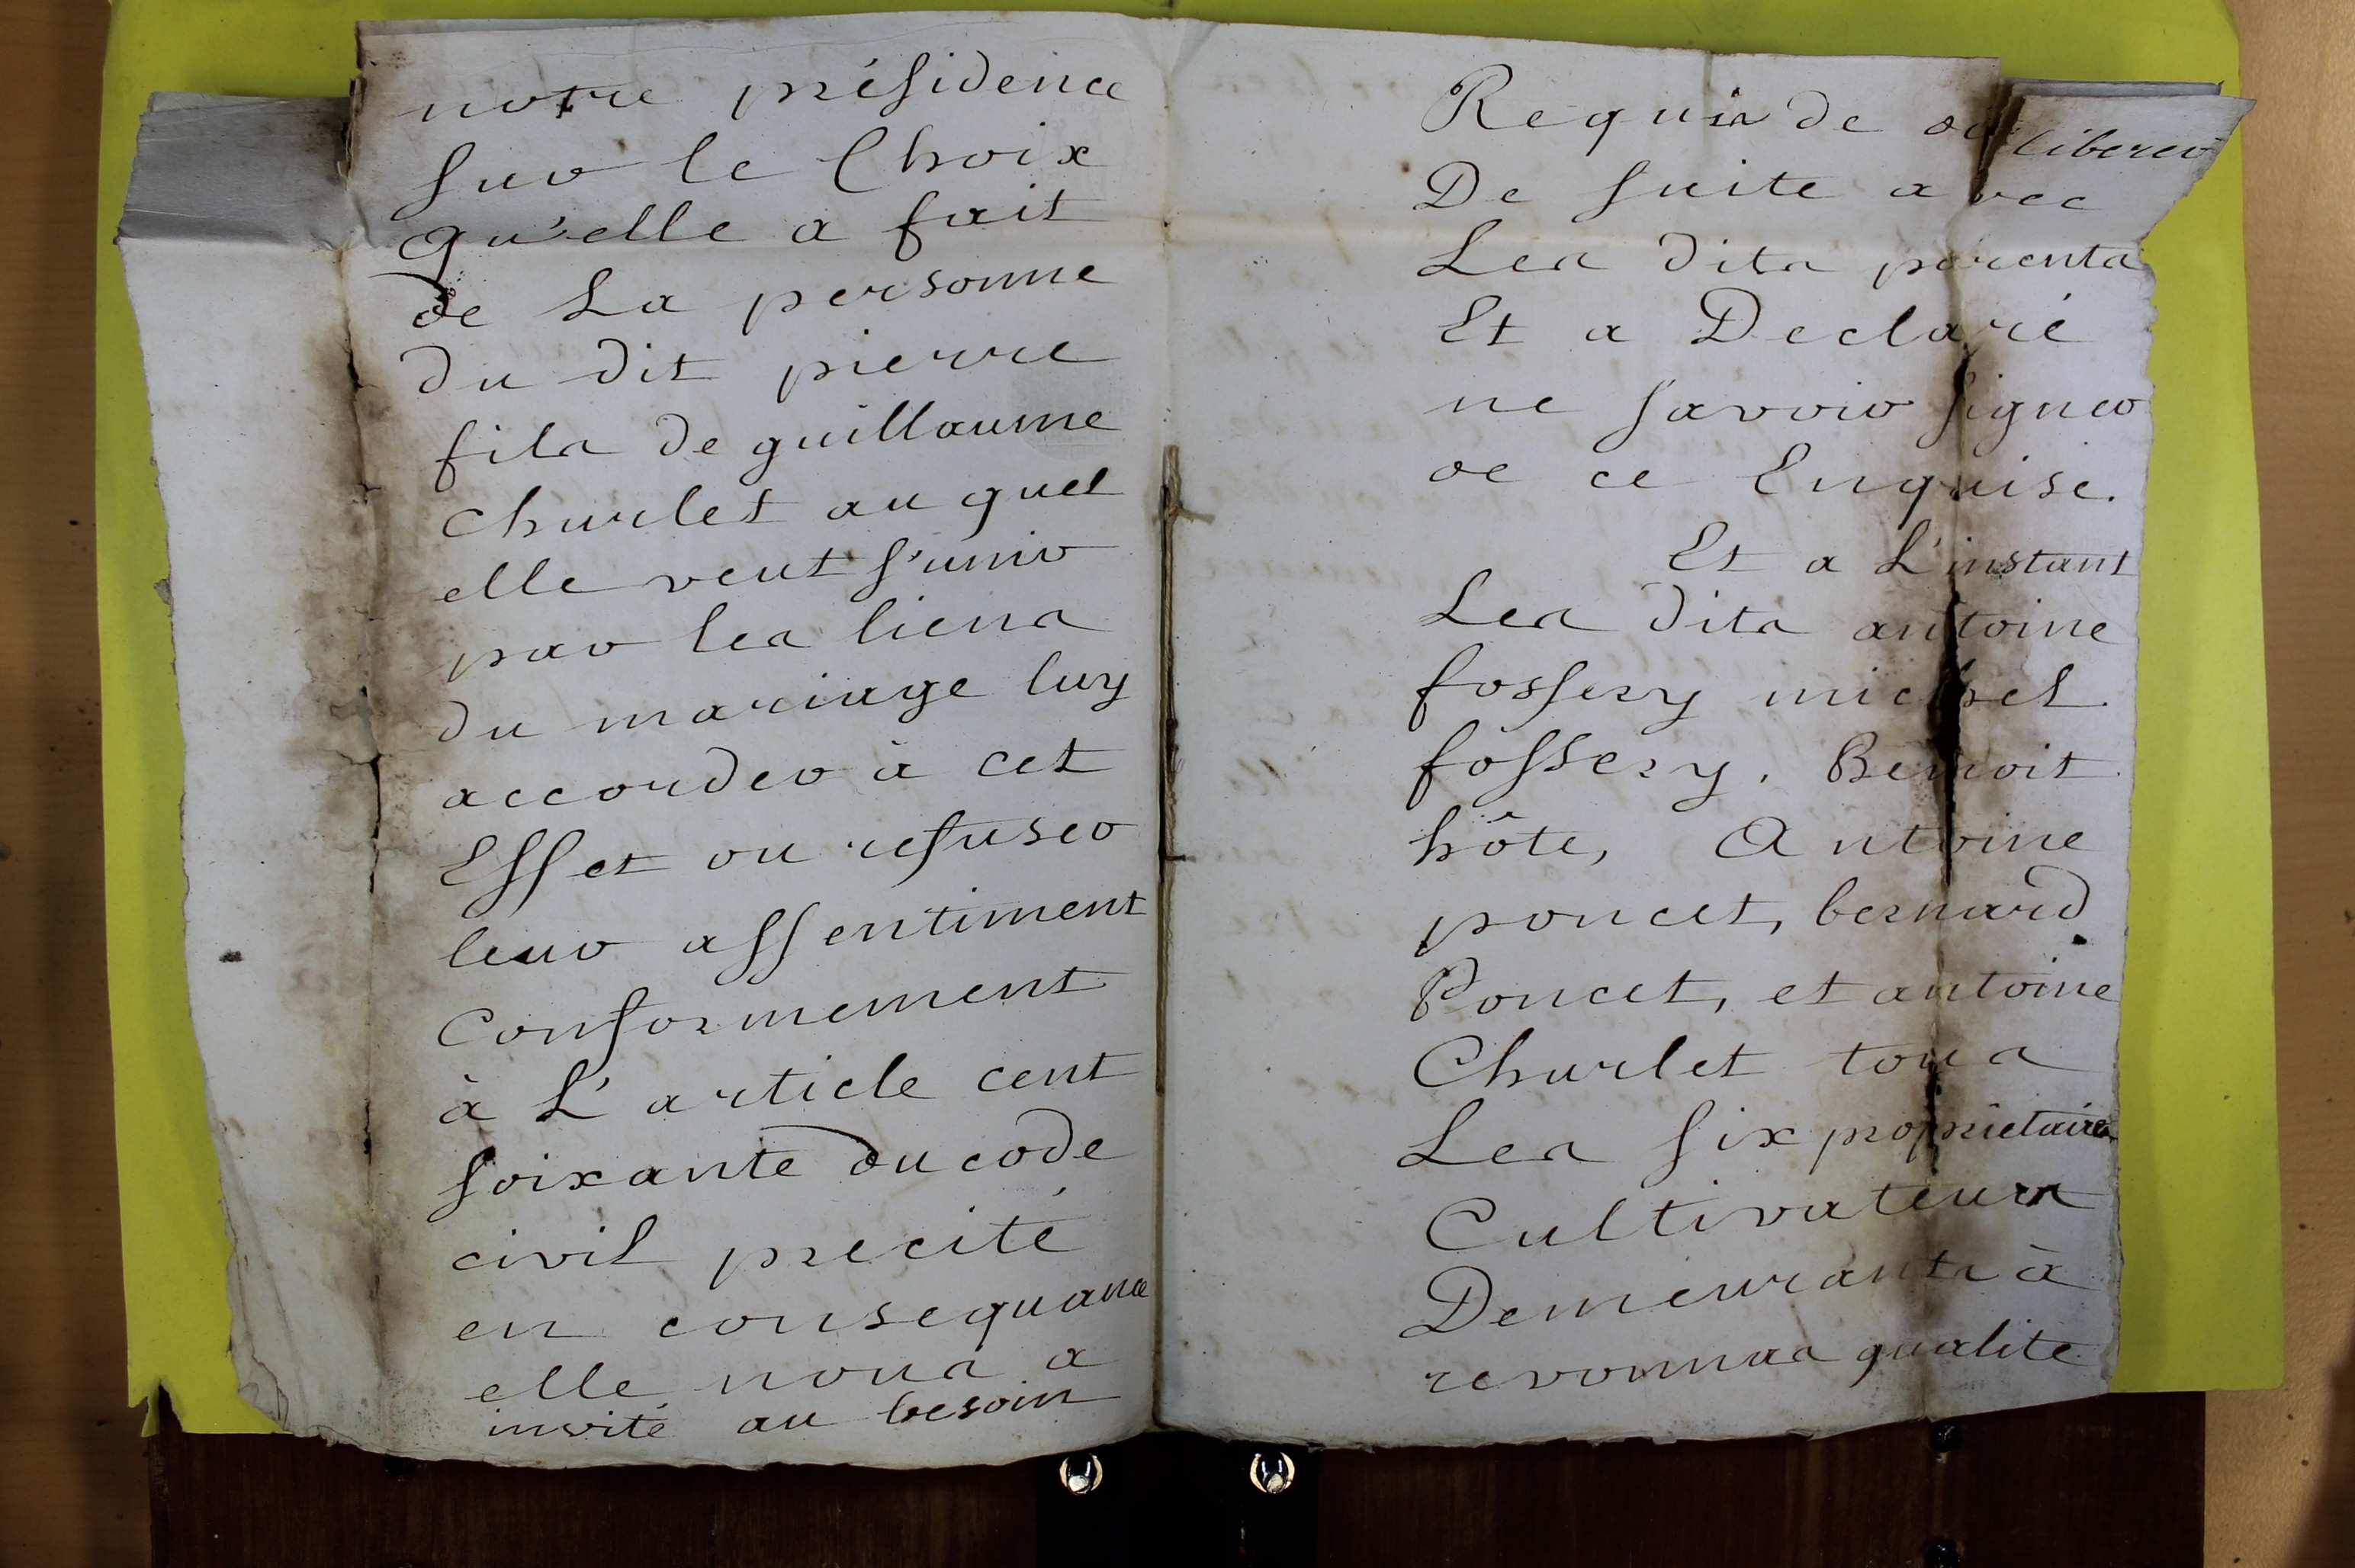 notre présidence
sur le Choix
qu'elle a fait
de La personne
du dit pierre
fils de guillaume
churlet au quel
elle veut s'unir
par les liens
du mariage luy
accorder à cet
Effet ou refuser
leur assentiment
Conformement
à L'article cent
soixante du code
civil precité
en consequance
elle nous a
invité au besoin
Requis de deliberer
De suite avec
Les dits parents
Et a Declaré
ne savoir signer
de ce Enquise.
Et a L'instant
Les dits antoine
fossery michel
fôssery. Benoit
hôte, Antoine
poncet, bernard
Poncet, et antoine
Churlet tous
Les six proprietaires
Cultivateurs
Demeurants à
revonnas qualite